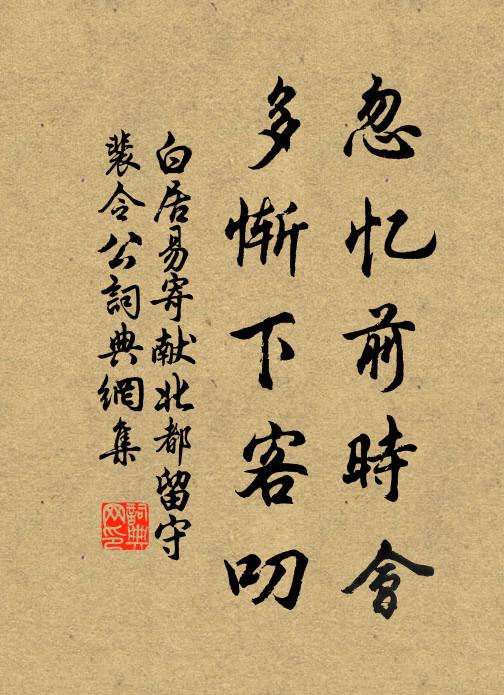 忽忆前時會
多惭下客叨
白居易寄献北都留守
裴令公詞典網集
詞典网印